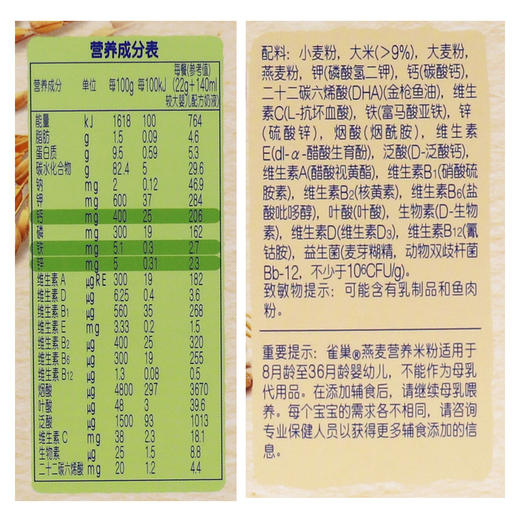 营养成分表
营养成分 单位 每100g 每100kJ 每餐(参考值)(22g+140ml较大婴儿配方奶液)
能量 kJ 1618 100 764
脂肪 g 1.5 0.09 4.6
蛋白质 g 9.5 0.59 5.3
碳水化合物 g 82.4 5 29.6
钠 mg 2 0.12 46.9
钾 mg 600 37 284
钙 mg 400 25 206
磷 mg 300 19 162
铁 mg 5.1 0.3 2.7
锌 mg 5 0.31 2.3
维生素 A μgRE 300 19 182
维生素 D μg 6.25 0.4 3.6
维生素 B₁ μg 560 35 268
维生素 E mg 3.33 0.2 1.5
维生素 B₂ μg 400 25 320
维生素 B₆ μg 300 19 255
维生素 B₁₂ μg 1.3 0.08 0.5
烟酸 μg 4800 297 3670
叶酸 μg 48 3 39.6
泛酸 μg 1500 93 1013
维生素 C mg 38 2.3 18.1
生物素 μg 25 1.5 8.8
二十二碳六烯酸 mg 20 1.2 4.4
配料：小麦粉，大米(>9%)，大麦粉，
燕麦粉，钾(磷酸氢二钾)，钙(碳酸钙)，
二十二碳六烯酸(DHA)(金枪鱼油)，维生
素C(L-抗坏血酸)，铁(富马酸亚铁)，锌
(硫酸锌)，烟酸(烟酰胺)，维生素
E(dl-α-醋酸生育酚)，泛酸(D-泛酸钙)，
维生素A(醋酸视黄酯)，维生素B₁(硝酸硫
胺素)，维生素B₂(核黄素)，维生素B₆(盐
酸吡哆醇)，叶酸(叶酸)，生物素(D-生物
素)，维生素D(维生素D₃)，维生素B₁₂(氰
钴胺)，益生菌(麦芽糊精，动物双歧杆菌
Bb-12，不少于10⁶CFU/g)。
致敏物提示：可能含有乳制品和鱼肉
粉。
重要提示：雀巢®燕麦营养米粉适用于
8月龄至36月龄婴幼儿，不能作为母乳
代用品。在添加辅食后，请继续母乳喂
养。每个宝宝的需求各不相同，请咨询
专业保健人员以获得更多辅食添加的信
息。